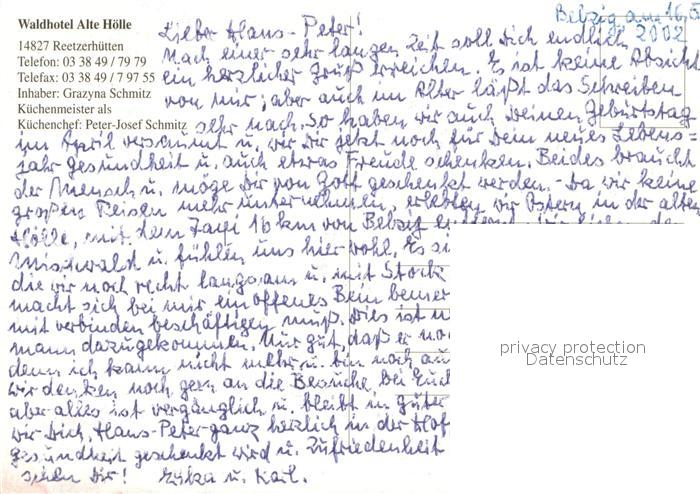 Waldhotel Alte Hölle
14827 Reetzerhütten
Telefon: 03 38 49 / 79 79
Telefax: 03 38 49 / 7 97 55
Inhaber: Grazyna Schmitz
Küchenmeister als
Küchenchef: Peter-Josef Schmitz
Belzig am 16.5
2002
Lieber Hans-Peter!
Nach einer sehr langen Zeit soll Dich endlich
ein herzlicher Gruß erreichen. Es ist keine Absicht
von mir; aber auch im Alter läßt das Schreiben
sehr nach. So haben wir auch Deinen Geburtstag
im April versäumt u. wir Dir jetzt noch für Dein neues Lebens=
jahr Gesundheit u. auch etwas Freude schenken. Beides braucht
der Mensch u. möge Dir von Gott geschenkt werden. - Da wir keine
großen Reisen mehr unternehmen, erlebten wir Ostern in der alten
Hölle, mit dem Taxi 16 km von Belzig
Mischwald u. fühlen uns hier wohl. Es
die wir noch recht langsam u. mit Stock
macht sich bei mir ein offenes Bein
mit verbinden beschäftigen muß. Dies ist
mann dazugekommen. Nur gut, daß er
denn ich kann nicht mehr u. bin noch
wir denken noch gern an die Besuche bei Euch
aber alles ist vergänglich u. bleibt in guter
wir Dich, Hans-Peter ganz herzlich in der
Gesundheit geschenkt wird u. Zufriedenheit
Dir! u. Karl.
privacy protection
Datenschutz